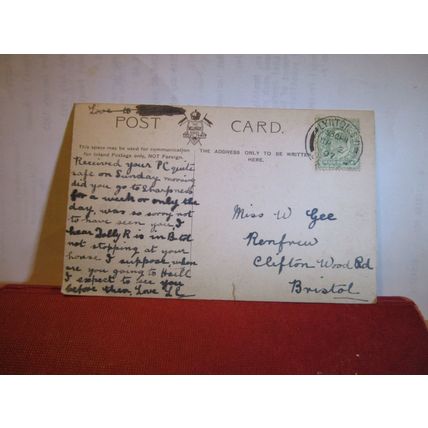 Love to
POST CARD.
This space may be used for communication
for Inland Postage only, NOT Foreign.
THE ADDRESS ONLY TO BE WRITTEN
HERE.
Received your PC quite
safe on Sunday morning
did you go to Sharpness
for a week or only the
day, was so sorry not
to have seen you, I
hear Jolly R is in B
not stopping at your
house I suppose, when
are you going to
I expect to see you
before then. Love
Miss W Gee
Renfrew
Clifton Wood Rd
Bristol